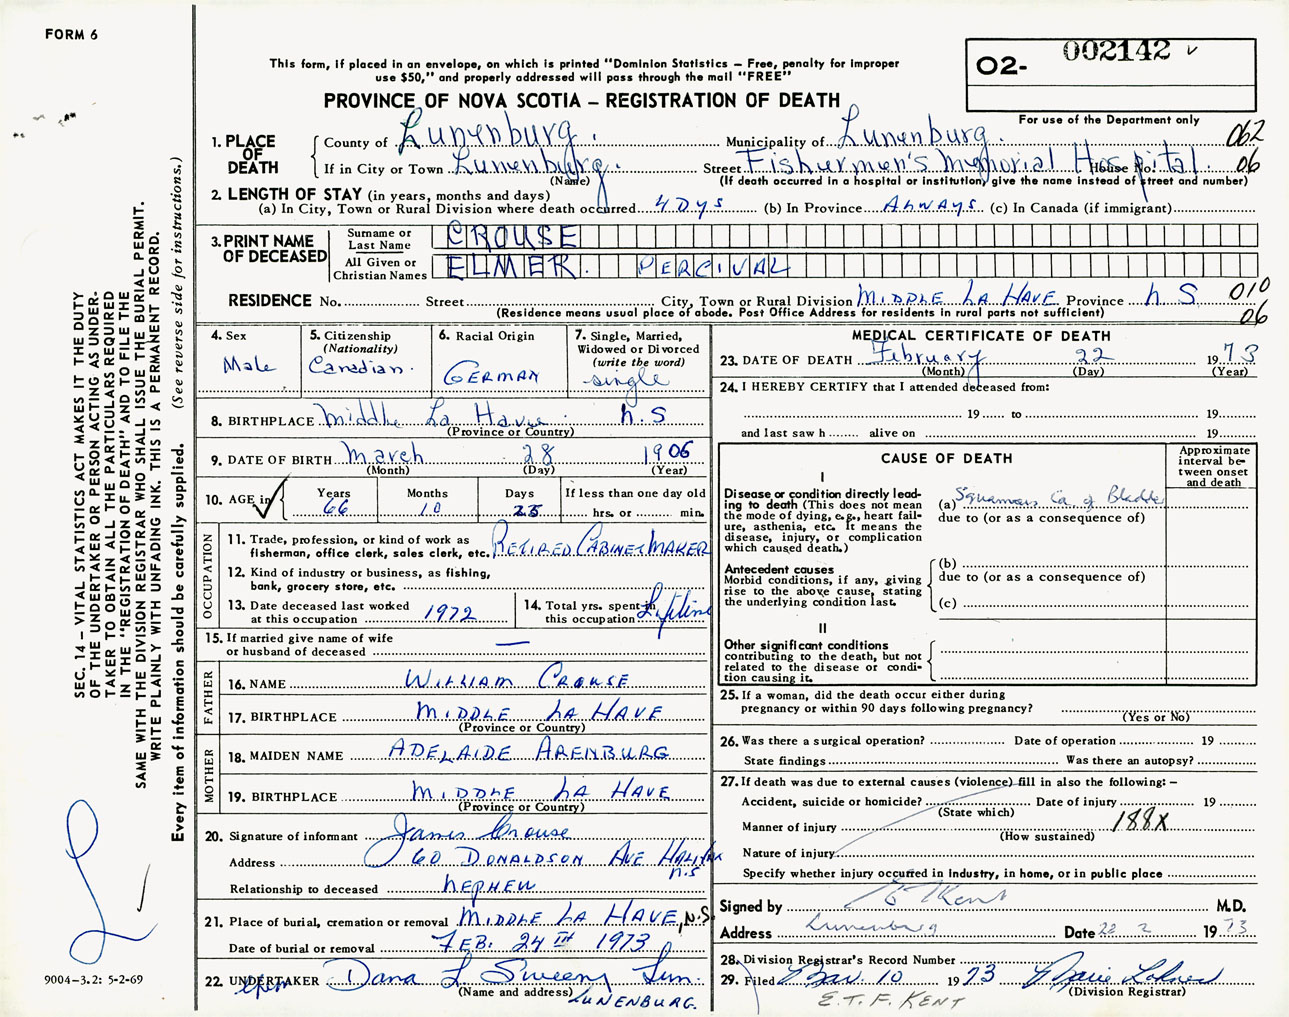 FORM 6
This form, if placed in an envelope, on which is printed "Dominion Statistics – Free, penalty for improper
use $50," and properly addressed will pass through the mail "FREE"
O2- 002142
PROVINCE OF NOVA SCOTIA – REGISTRATION OF DEATH
For use of the Department only
1. PLACE OF DEATH
County of Lunenburg. Municipality of Lunenburg. 062
If in City or Town Lunenburg. Street Fishermen's Memorial Hospital. House No. 06
(Name) (If death occurred in a hospital or institution, give the name instead of street and number)
2. LENGTH OF STAY (in years, months and days)
(a) In City, Town or Rural Division where death occurred 4 Dys (b) In Province Always (c) In Canada (if immigrant)
3. PRINT NAME OF DECEASED
Surname or Last Name CROUSE
All Given or Christian Names ELMER. PERCIVAL
RESIDENCE No. Street City, Town or Rural Division MIDDLE LA HAVE Province N S 010
(Residence means usual place of abode. Post Office Address for residents in rural parts not sufficient) 06
4. Sex
Male
5. Citizenship (Nationality)
Canadian.
6. Racial Origin
GERMAN
7. Single, Married, Widowed or Divorced (write the word)
single
8. BIRTHPLACE Middle La Have. N.S
(Province or Country)
9. DATE OF BIRTH March 28 1906
(Month) (Day) (Year)
10. AGE in Years 66 Months 10 Days 25 If less than one day old hrs. or min.
OCCUPATION
11. Trade, profession, or kind of work as fisherman, office clerk, sales clerk, etc. RETIRED CABINET MAKER
12. Kind of industry or business, as fishing, bank, grocery store, etc.
13. Date deceased last worked at this occupation 1972
14. Total yrs. spent in this occupation Lifetime
15. If married give name of wife or husband of deceased —
FATHER
16. NAME WILLIAM CROUSE
17. BIRTHPLACE MIDDLE LA HAVE
(Province or Country)
MOTHER
18. MAIDEN NAME ADELAIDE ARENBURG
19. BIRTHPLACE MIDDLE LA HAVE
(Province or Country)
20. Signature of informant James Crouse
Address 60 DONALDSON AVE HALIFAX N.S
Relationship to deceased NEPHEW
21. Place of burial, cremation or removal MIDDLE LA HAVE, N.S.
Date of burial or removal FEB: 24TH 1973
22. UNDERTAKER Dana L Sweeny
(Name and address) LUNENBURG.
MEDICAL CERTIFICATE OF DEATH
23. DATE OF DEATH February 22 1973
(Month) (Day) (Year)
24. I HEREBY CERTIFY that I attended deceased from:
19 to 19
and last saw h alive on 19
CAUSE OF DEATH
Approximate interval between onset and death
I
Disease or condition directly leading to death (This does not mean the mode of dying, e.g., heart failure, asthenia, etc. It means the disease, injury, or complication which caused death.)
(a) Squamous Ca. of Bladder
due to (or as a consequence of)
Antecedent causes
Morbid conditions, if any, giving rise to the above cause, stating the underlying condition last.
(b)
due to (or as a consequence of)
(c)
II
Other significant conditions
contributing to the death, but not related to the disease or condition causing it.
25. If a woman, did the death occur either during pregnancy or within 90 days following pregnancy?
(Yes or No)
26. Was there a surgical operation? Date of operation 19
State findings Was there an autopsy?
27. If death was due to external causes (violence) fill in also the following: –
Accident, suicide or homicide? Date of injury 19
(State which)
Manner of injury 188X
(How sustained)
Nature of injury
Specify whether injury occurred in industry, in home, or in public place
Signed by E T Kent M.D.
Address Lunenburg Date 22 2 1973
28. Division Registrar's Record Number
29. Filed Mar. 10 1973
(Division Registrar)
E.T.F. KENT
SEC. 14 – VITAL STATISTICS ACT MAKES IT THE DUTY
OF THE UNDERTAKER OR PERSON ACTING AS UNDER-
TAKER TO OBTAIN ALL THE PARTICULARS REQUIRED
IN THE "REGISTRATION OF DEATH" AND TO FILE THE
SAME WITH THE DIVISION REGISTRAR WHO SHALL ISSUE THE BURIAL PERMIT.
WRITE PLAINLY WITH UNFADING INK. THIS IS A PERMANENT RECORD.
Every item of information should be carefully supplied. (See reverse side for instructions.)
9004–3.2: 5-2-69